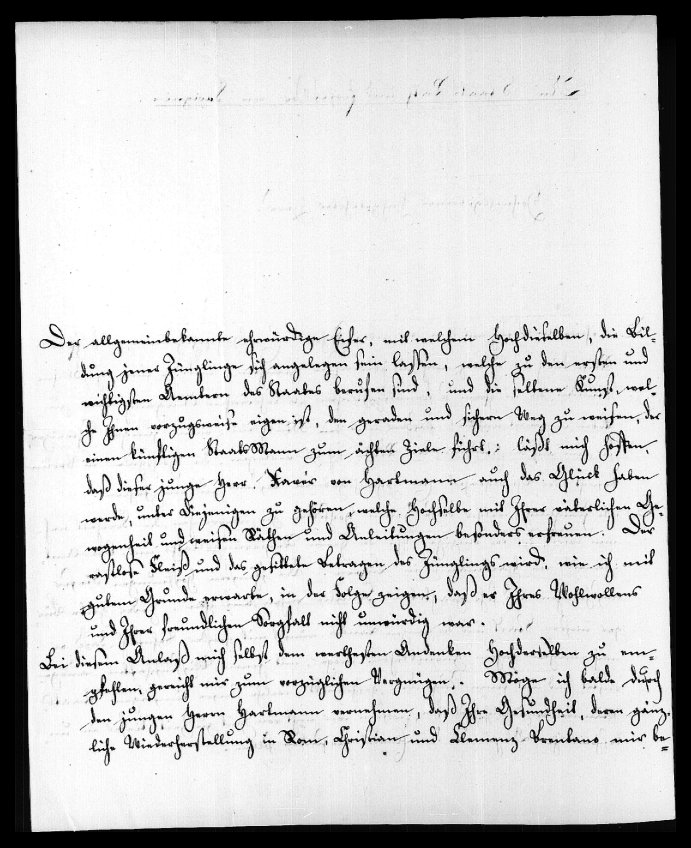 Der allgemeinbekannte ehrwürdige Eifer, mit welchem Hochdieselben, die Bil-
dung jener Jünglinge sich angelegen sein lassen, welche zu den ersten und
wichtigsten Aemtern des Staates berufen sind, und die seltene Kunst, wel-
che Ihnen vorzugsweise eigen ist, den geraden und sichern Weg zu weisen, der
einen künftigen StaatsMann zum ächten Ziele führt,: läßt mich hoffen,
daß dieser junge Herr Xaver von Hartmann auch das Glück haben
werde, unter diejenigen zu gehören, welche Hochselbe mit Ihrer väterlichen Ge-
wogenheit und weisen Räthen und Anleitungen besonders erfreuen. Der
rastlose Fleiß und das gesittete Betragen des Jünglings wird, wie ich mit
gutem Grunde erwarte, in der Folge zeigen, daß er Ihres Wohlwollens
und Ihrer freundlichen Sorgfalt nicht unwürdig war.
Bei diesem Anlaß mich selbst dem werthesten Andenken Hochderselben zu em-
pfehlen, gereicht mir zum vorzüglichen Vergnügen. Möge ich balde durch
den jungen Herrn Hartmann vernehmen, daß Ihre Gesundheit, deren gänz-
liche Wiederherstellung in Rom, Christian und Clemenz Brentano mir be-